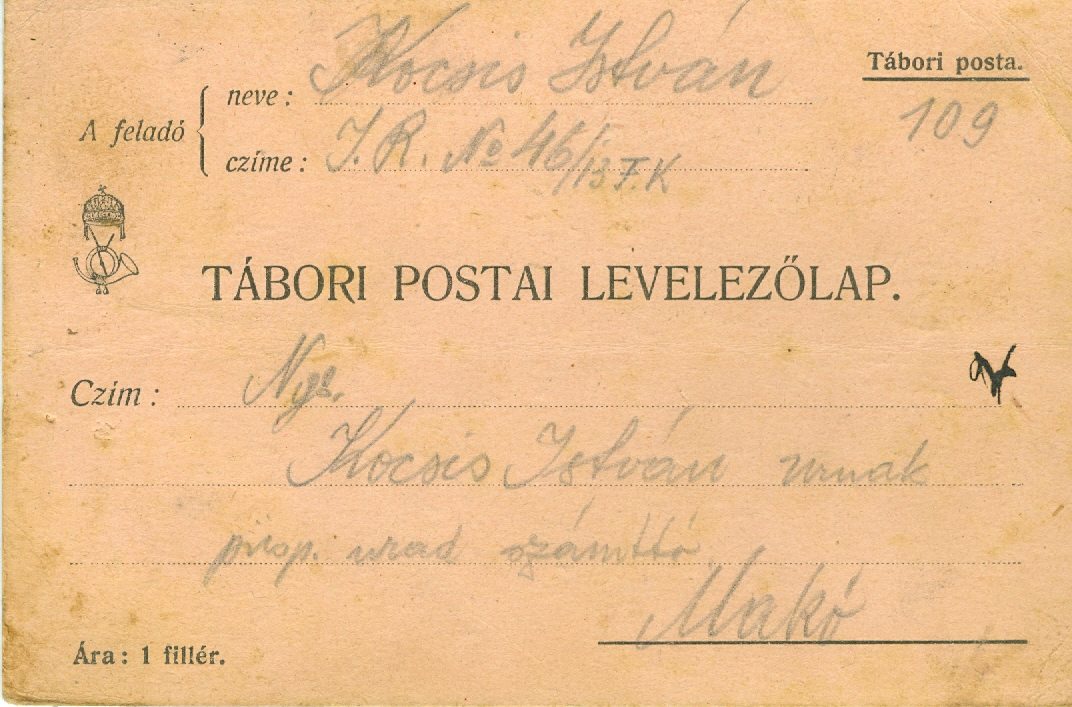 Kocsis István
Tábori posta.
neve:
109
A feladó
czíme: I. R. No 46/13 F.K
TÁBORI POSTAI LEVELEZŐLAP.
Czím: Ngs.
Kocsis István urnak
püsp. urad számttó
Makó
Ára: 1 fillér.